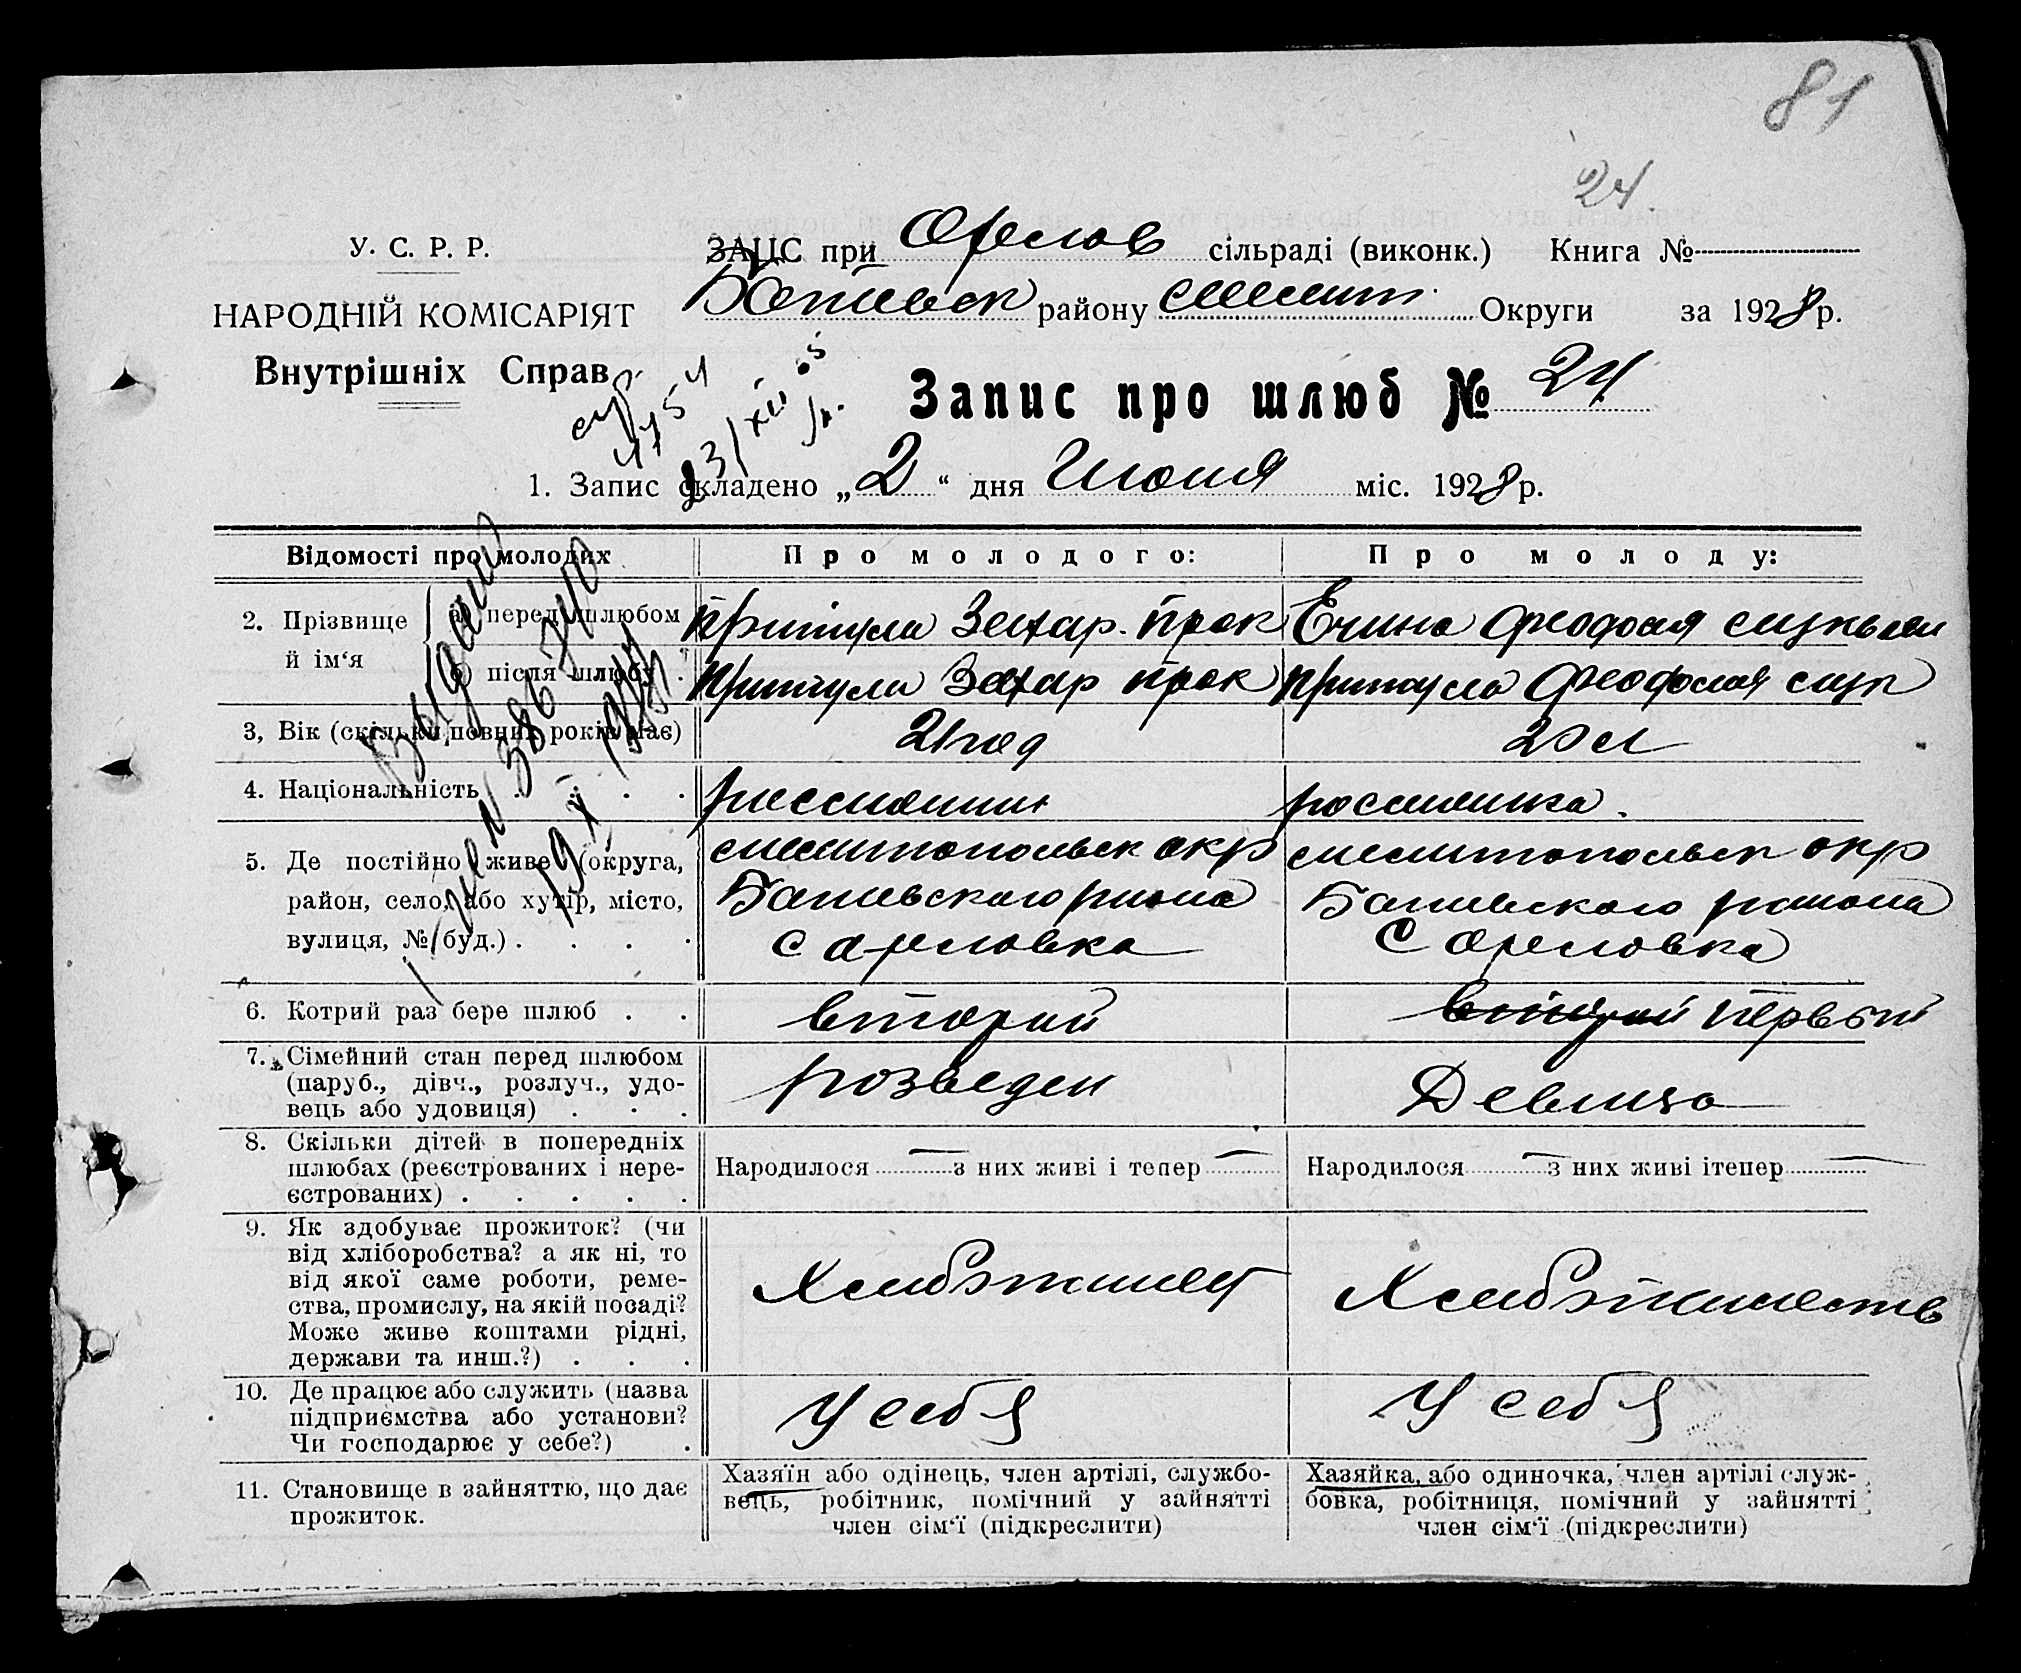 81
24
У. С. Р. Р.
ЗАЦС при Орелов сільраді (виконк.) Книга №
НАРОДНІЙ КОМІСАРІЯТ
району Округи за 1928 р.
Внутрішніх Справ
Запис про шлюб № 24
1. Запис складено „2“ дня Июня міс. 1928 р.
Відомості про молодих Про молодого: Про молоду:
2. Прізвище й ім‘я
а) перед шлюбом Притула Захар. Прок
б) після шлюбу . Притула Захар Прок Притула
3, Вік (скільки повних років має) 21 год 20 л
4. Національність . . . . россиянин россиянка.
5. Де постійно живе (округа, мелитопольск окр мелитопольск окр
район, село, або хутір, місто, района района
вулиця, № буд.) . . . . с орловка С орловка
6. Котрий раз бере шлюб . . второй второй первый
7. Сімейний стан перед шлюбом
(паруб., дівч., розлуч., удо- розведен Девица
вець або удовиця) . . .
8. Скільки дітей в попередніх
шлюбах (реєстрованих і нере- Народилося — з них живі і тепер — Народилося — з них живі ітепер —
єстрованих) . . . . .
9. Як здобуває прожиток? (чи
від хліборобства? а як ні, то
від якої саме роботи, реме-
ства, промислу, на якій посаді?
Може живе коштами рідні,
держави та инш.?) . . .
10. Де працює або служить (назва У себя У себя
підприємства або установи?
Чи господарює у себе?) .
11. Становище в зайняттю, що дає
прожиток.
Хазяїн або одінець, член артілі, службо-
вець, робітник, помічний у зайнятті
член сім‘ї (підкреслити)
Хазяйка, або одиночка, член артілі служ-
бовка, робітниця, помічний у зайнятті
член сім‘ї (підкреслити)